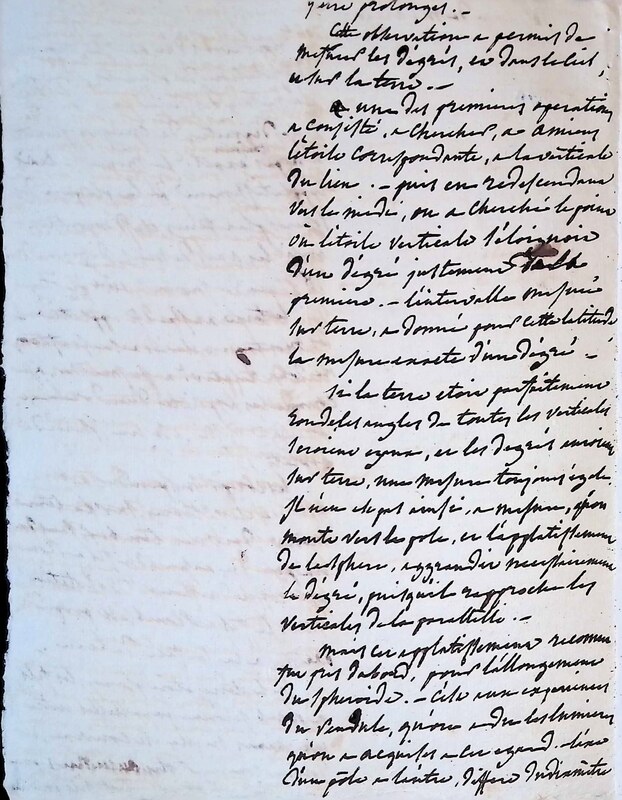 y être prolonger. -
Cette observation a permis de
mesurer les dégrés, et dans le ciel,
et sur la terre. -
une des premieres operations
a consisté, a chercher, a amiens
l'étoile correspondante, a la verticale
du lieu. - puis en redescendant
vers le midi, on a cherché le point
où l'étoile verticale s'éloignoit
d'un dégré justement de la
premiere. - l'intervalle mesuré
sur terre, a donné pour cette latitude
la mesure exacte d'un dégré -
si la terre etoit parfaitement
ronde les angles de toutes les verticales
seroient egaux, et les degrés auroient
sur terre, une mesure toujours égale.
il n'en est pas ainsi, a mesure, qu'on
monte vers le pole, et l'applatissement
de la sphere, aggrandit necessairement
le dégré, puisqu'il rapproche les
verticales de la parallelle. -
mais cet applatissement reconnu
fut pris d'abord, pour l'allongement
du spheroide. - C'est aux experiences
du pendule, qu'on a du les lumieres
qu'on a acquises a cet egard. - l'axe
d'un pôle a l'autre, differe du diamètre